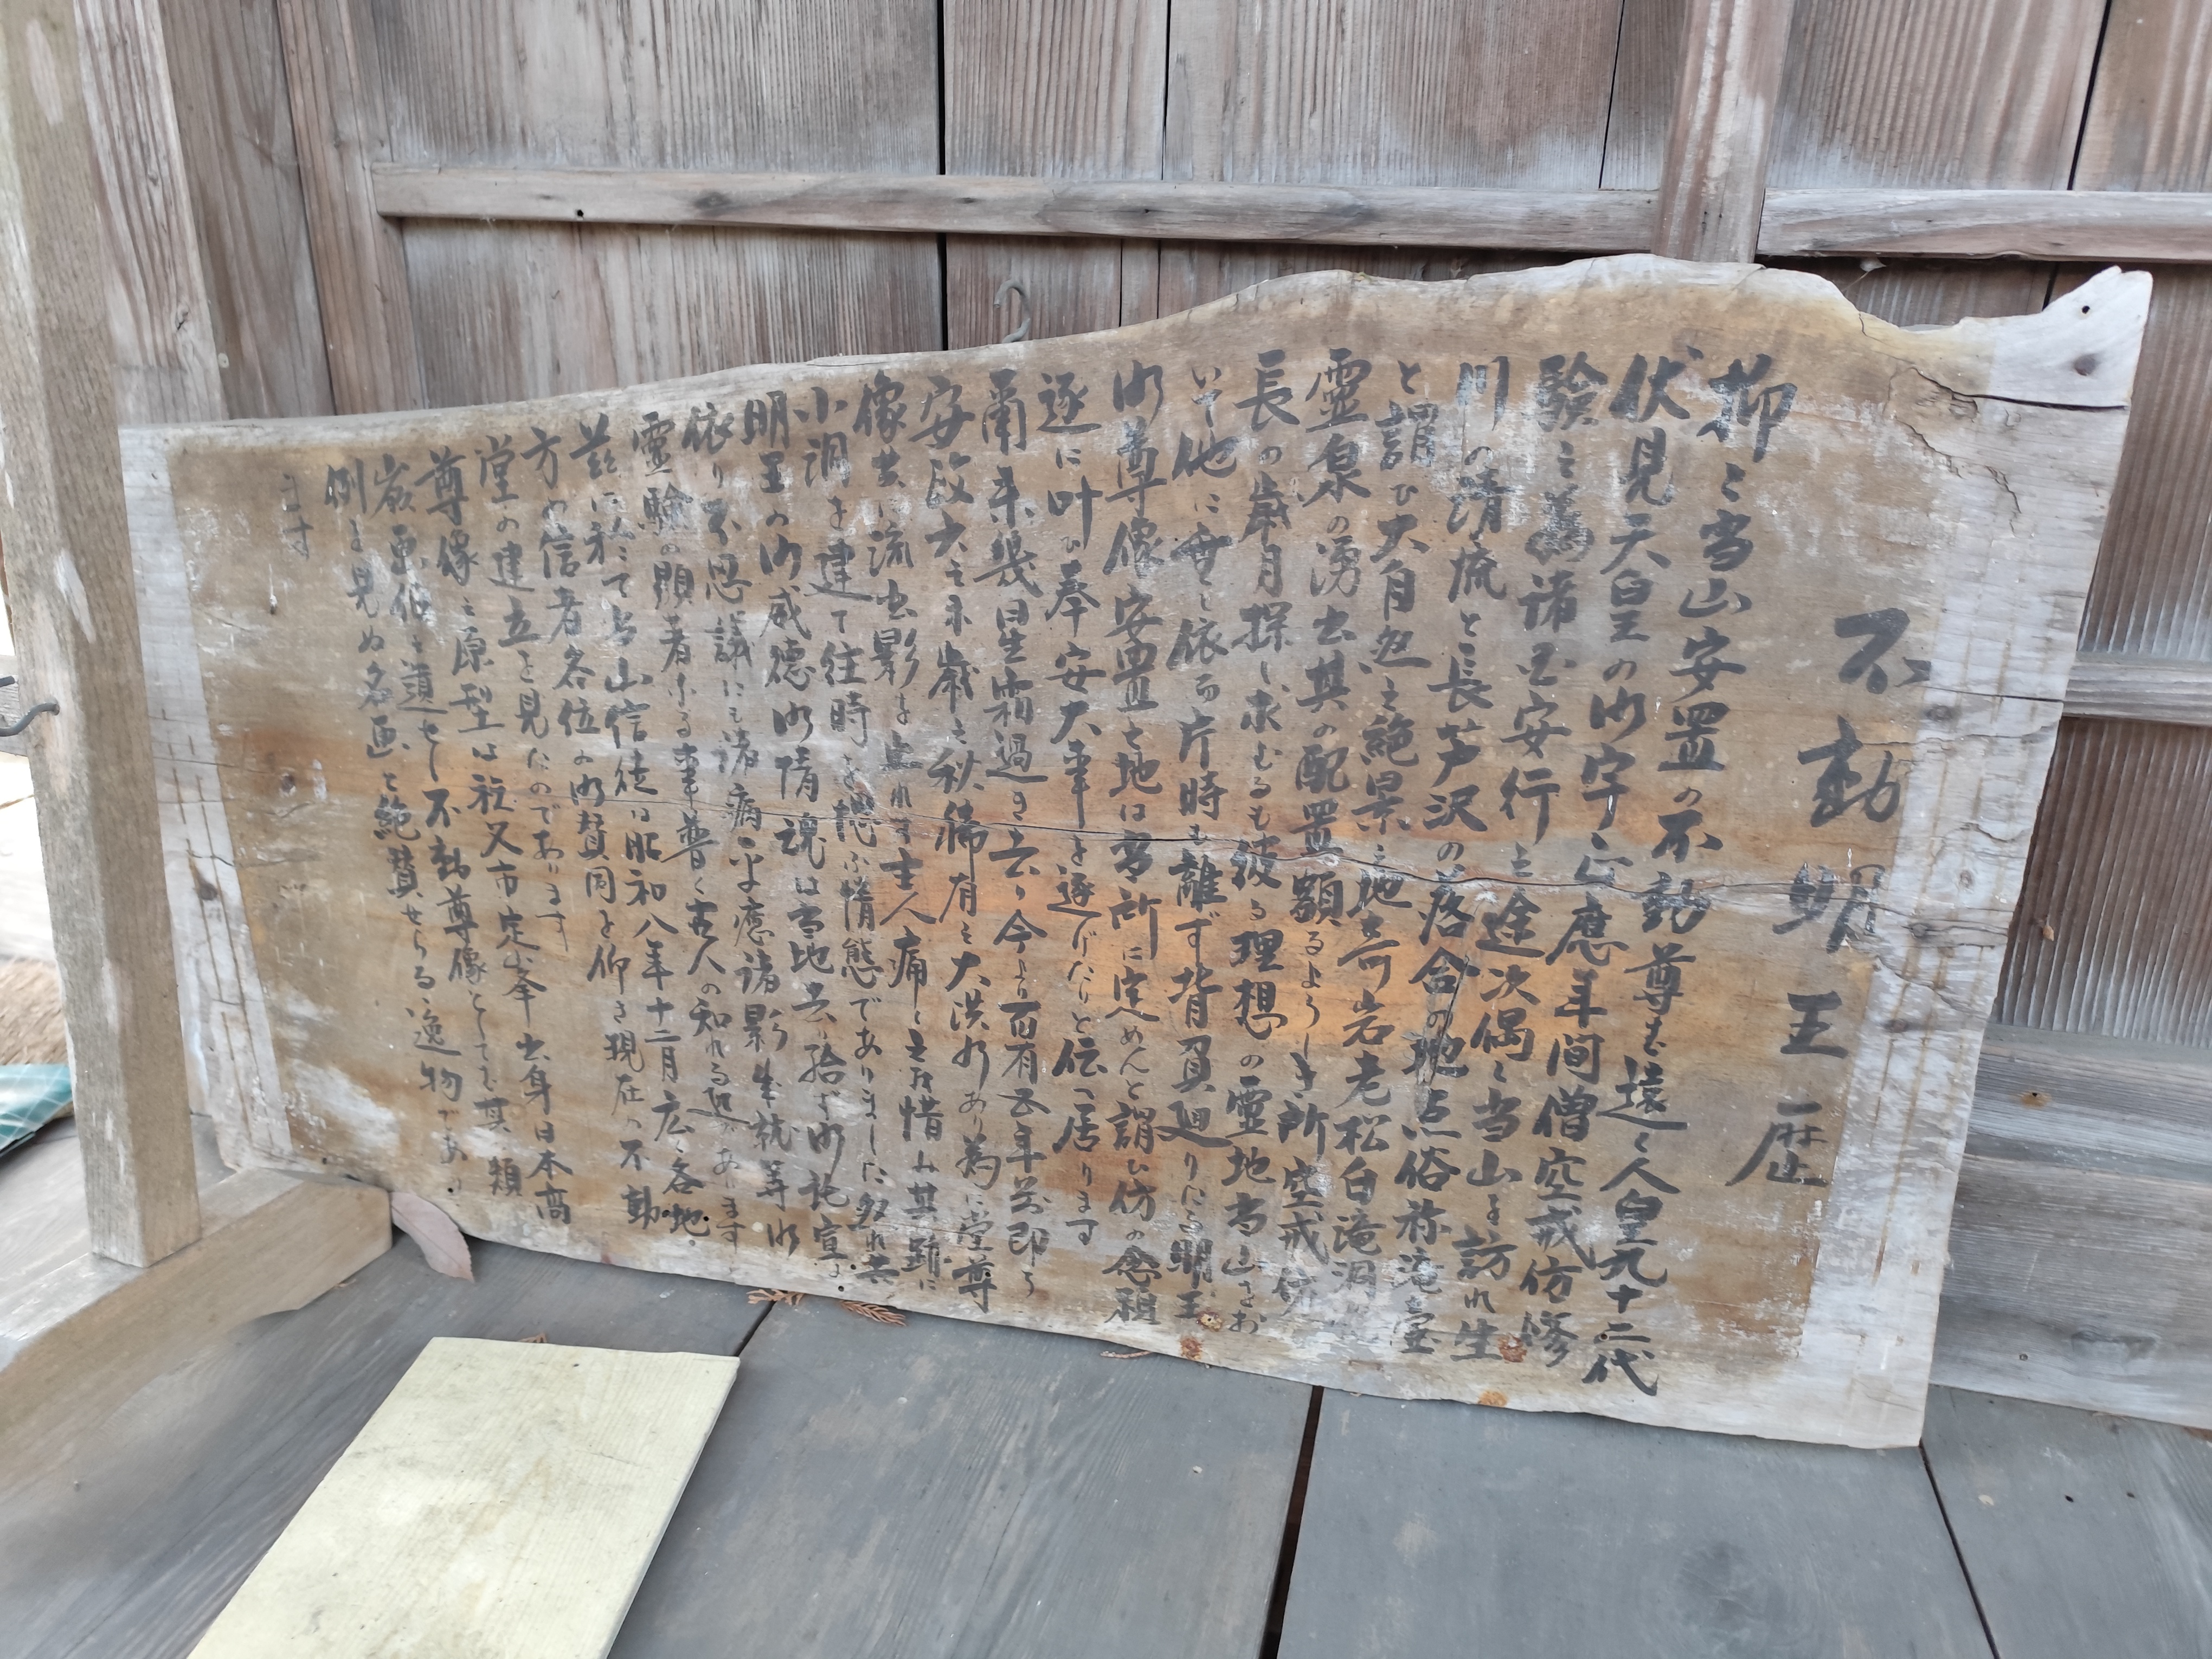 不動明王歴
抑〻当山安置の不動尊は遠く人皇九十二代
伏見天皇の御宇正應年間僧空戒坊修
験之為諸国安行之途次偶〻当山を訪れ生
川の清流と長芦沢の落合の地点俗称滝ヶ窪
と謂ひ大自然之絶景之地奇岩老松白滝洞
霊泉の湧出其の配置顕るようしき所空戒坊
長の歳月探し求むるも彼る理想の霊地当山をお
いて他に無し依而片時も離ず背負廻りたる明王
御尊像安置之地は当所に定めんと謂ひ坊の念願
遂に叶ひ奉安大事を遂げたりと伝へ居ります
爾来幾星霜過き去り今より百有五年前即ち
安政六之未歳之秋稀有之大洪水あり為に堂尊
像共に流出影を止れず主人痛く之を惜み其跡に
小洞を建て往時を偲ぶ情態でありました処れ共
明王の御威徳御情魂は当地去り給ず御託宣に
依り不思議にも諸病平癒諸影成就等御
霊験の顕著なる事普く古人の知れる処であります
茲に於て当山信徒は昭和八年十二月広く各地
方の信者各位の御賛同を仰き現在の不動
堂の建立を見たのであります
尊像之原型は祖父市定峯出身日本高
嶽画伯之道せし不動尊像としても其の類
例を見ぬ名画と絶賛せらる逸物であり
ます